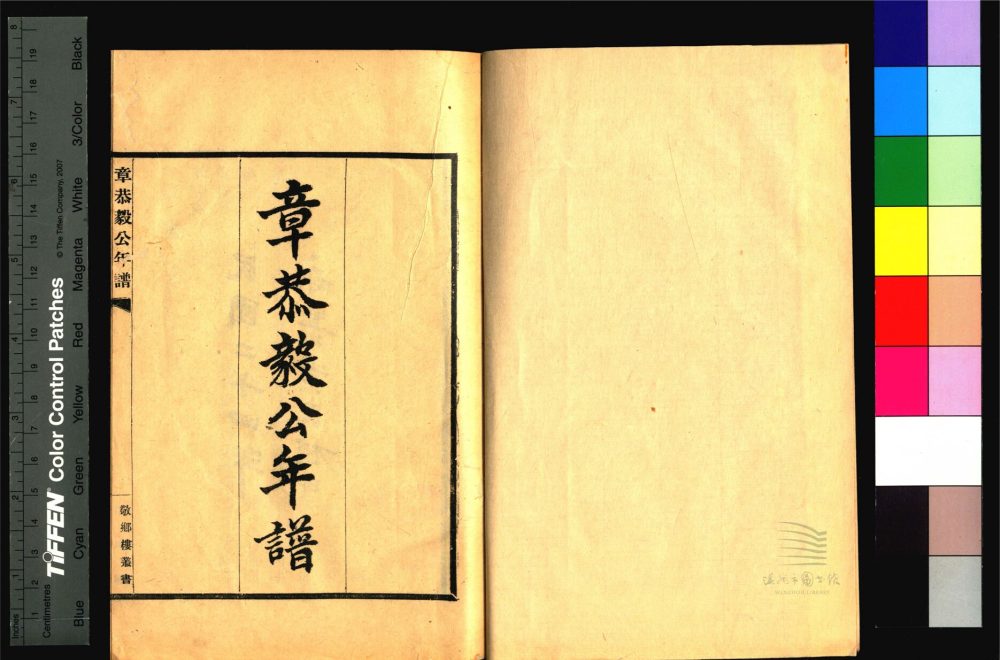 章恭毅公年譜
章恭毅公年譜
敬鄉樓叢書
溫州市圖書館
WENZHOU LIBRARY
Inches
Centimetres
1 2 3 4 5 6 7 8
1 2 3 4 5 6 7 8 9 10 11 12 13 14 15 16 17 18 19
TIFFEN® Color Control Patches
© The Tiffen Company, 2007
Blue Cyan Green Yellow Red Magenta White 3/Color Black